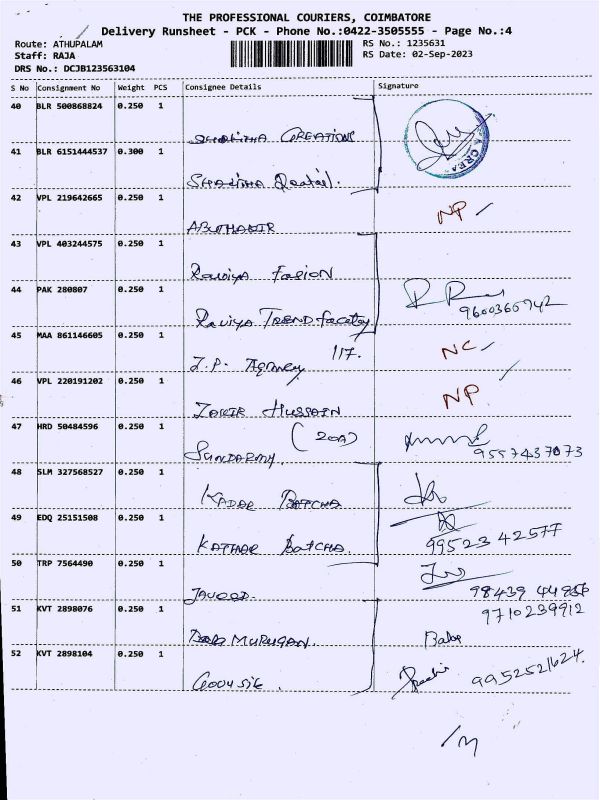 THE PROFESSIONAL COURIERS, COIMBATORE
Delivery Runsheet - PCK - Phone No.:0422-3505555 - Page No.:4
Route: ATHUPALAM RS No.: 1235631
Staff: RAJA RS Date: 02-Sep-2023
DRS No.: DCJB123563104
S No Consignment No Weight PCS Consignee Details Signature
40 BLR 500868824 0.250 1
CREATIONS
41 BLR 6151444537 0.300 1
42 VPL 219642665 0.250 1
NP
ABUTHAHIR
43 VPL 403244575 0.250 1
Raviya Fasion
44 PAK 280807 0.250 1
9600366942
Raviya TREND factory
45 MAA 861146605 0.250 1
117.
NC
J.P. Agency
46 VPL 220191202 0.250 1
NP
ZAKIR HUSSAIN
47 HRD 50484596 0.250 1
(20A)
9557437073
48 SLM 327568527 0.250 1
KADAR BATCHA
49 EDQ 25151508 0.250 1
99523 42577
KATHAR BATCHA.
50 TRP 7564490 0.250 1
JAVOOD.
98439
9710239912
51 KVT 2898076 0.250 1
MURUGAN.
Babe
52 KVT 2898104 0.250 1
9952521624.